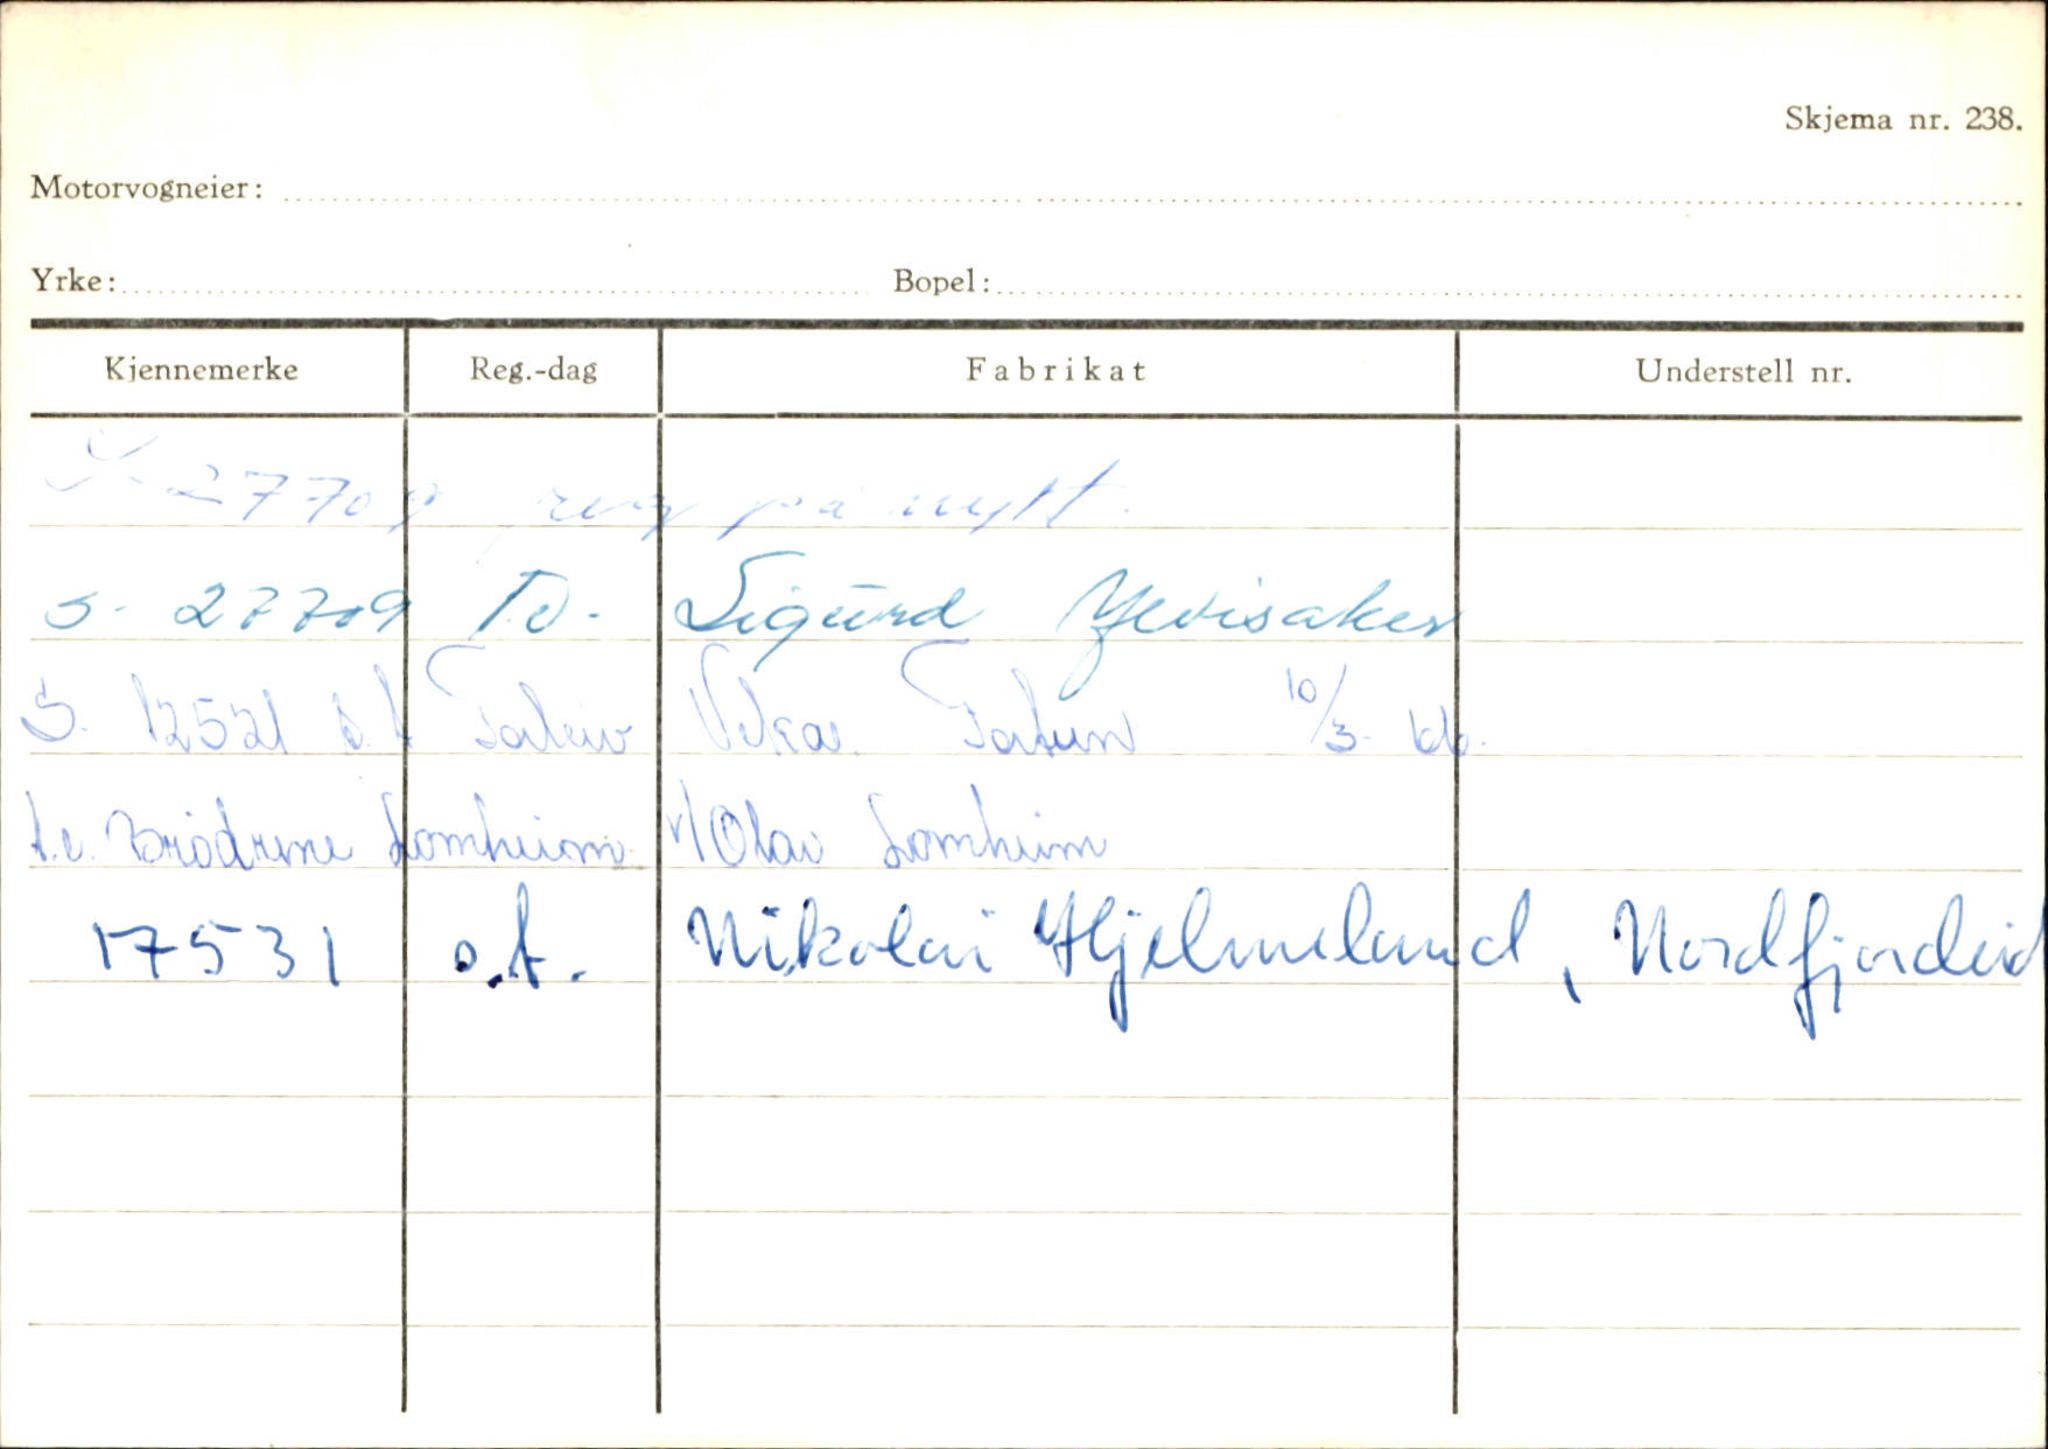 Skjema nr. 238.
Motorvogneier:
Yrke: Bopel:
Kjennemerke Reg.-dag Fabrikat Understell nr.
S-27709 reg på nytt.
S- 27709 T.v. Sigurd Ylvisaker
S. 12521 o.t. Torleiv Vikar 10/3-
t.v. Brødrene Lomheim v/Olav Lomheim
17531 o.t. Nikolai Hjelmeland, Nordfjordeid